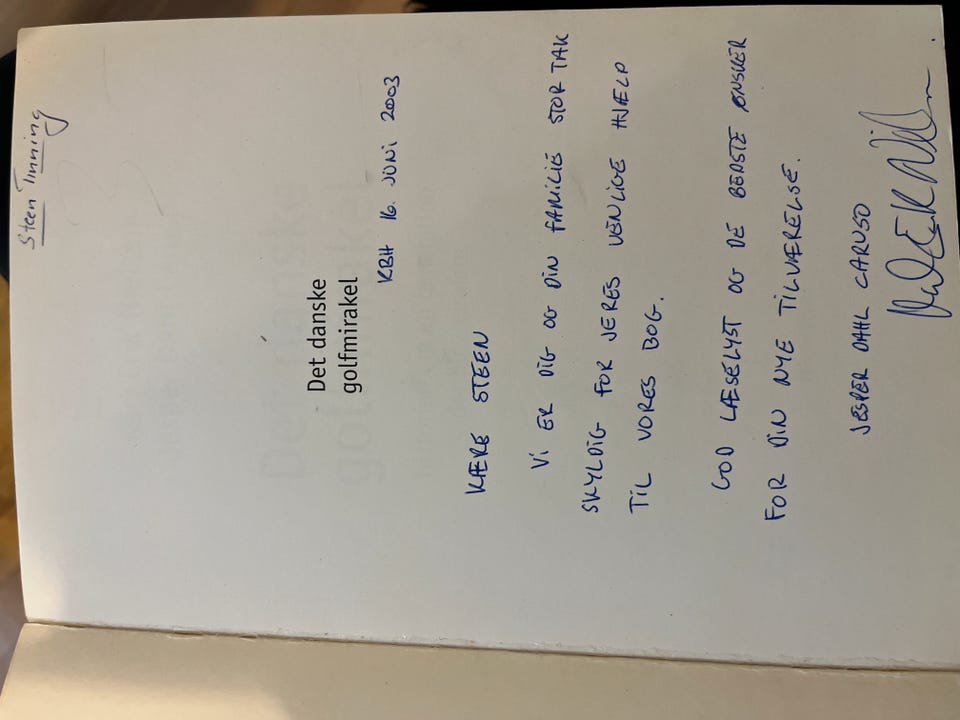 Steen Tinning
Det danske
golfmirakel
KBH 16. JUNI 2003
KÆRE STEEN
VI ER DIG OG DIN FAMILIE STOR TAK
SKYLDIG FOR JERES VENLIGE HJÆLP
TIL VORES BOG.
GOD LÆSELYST OG DE BEDSTE ØNSKER
FOR DIN NYE TILVÆRELSE.
JESPER DAHL CARUSO